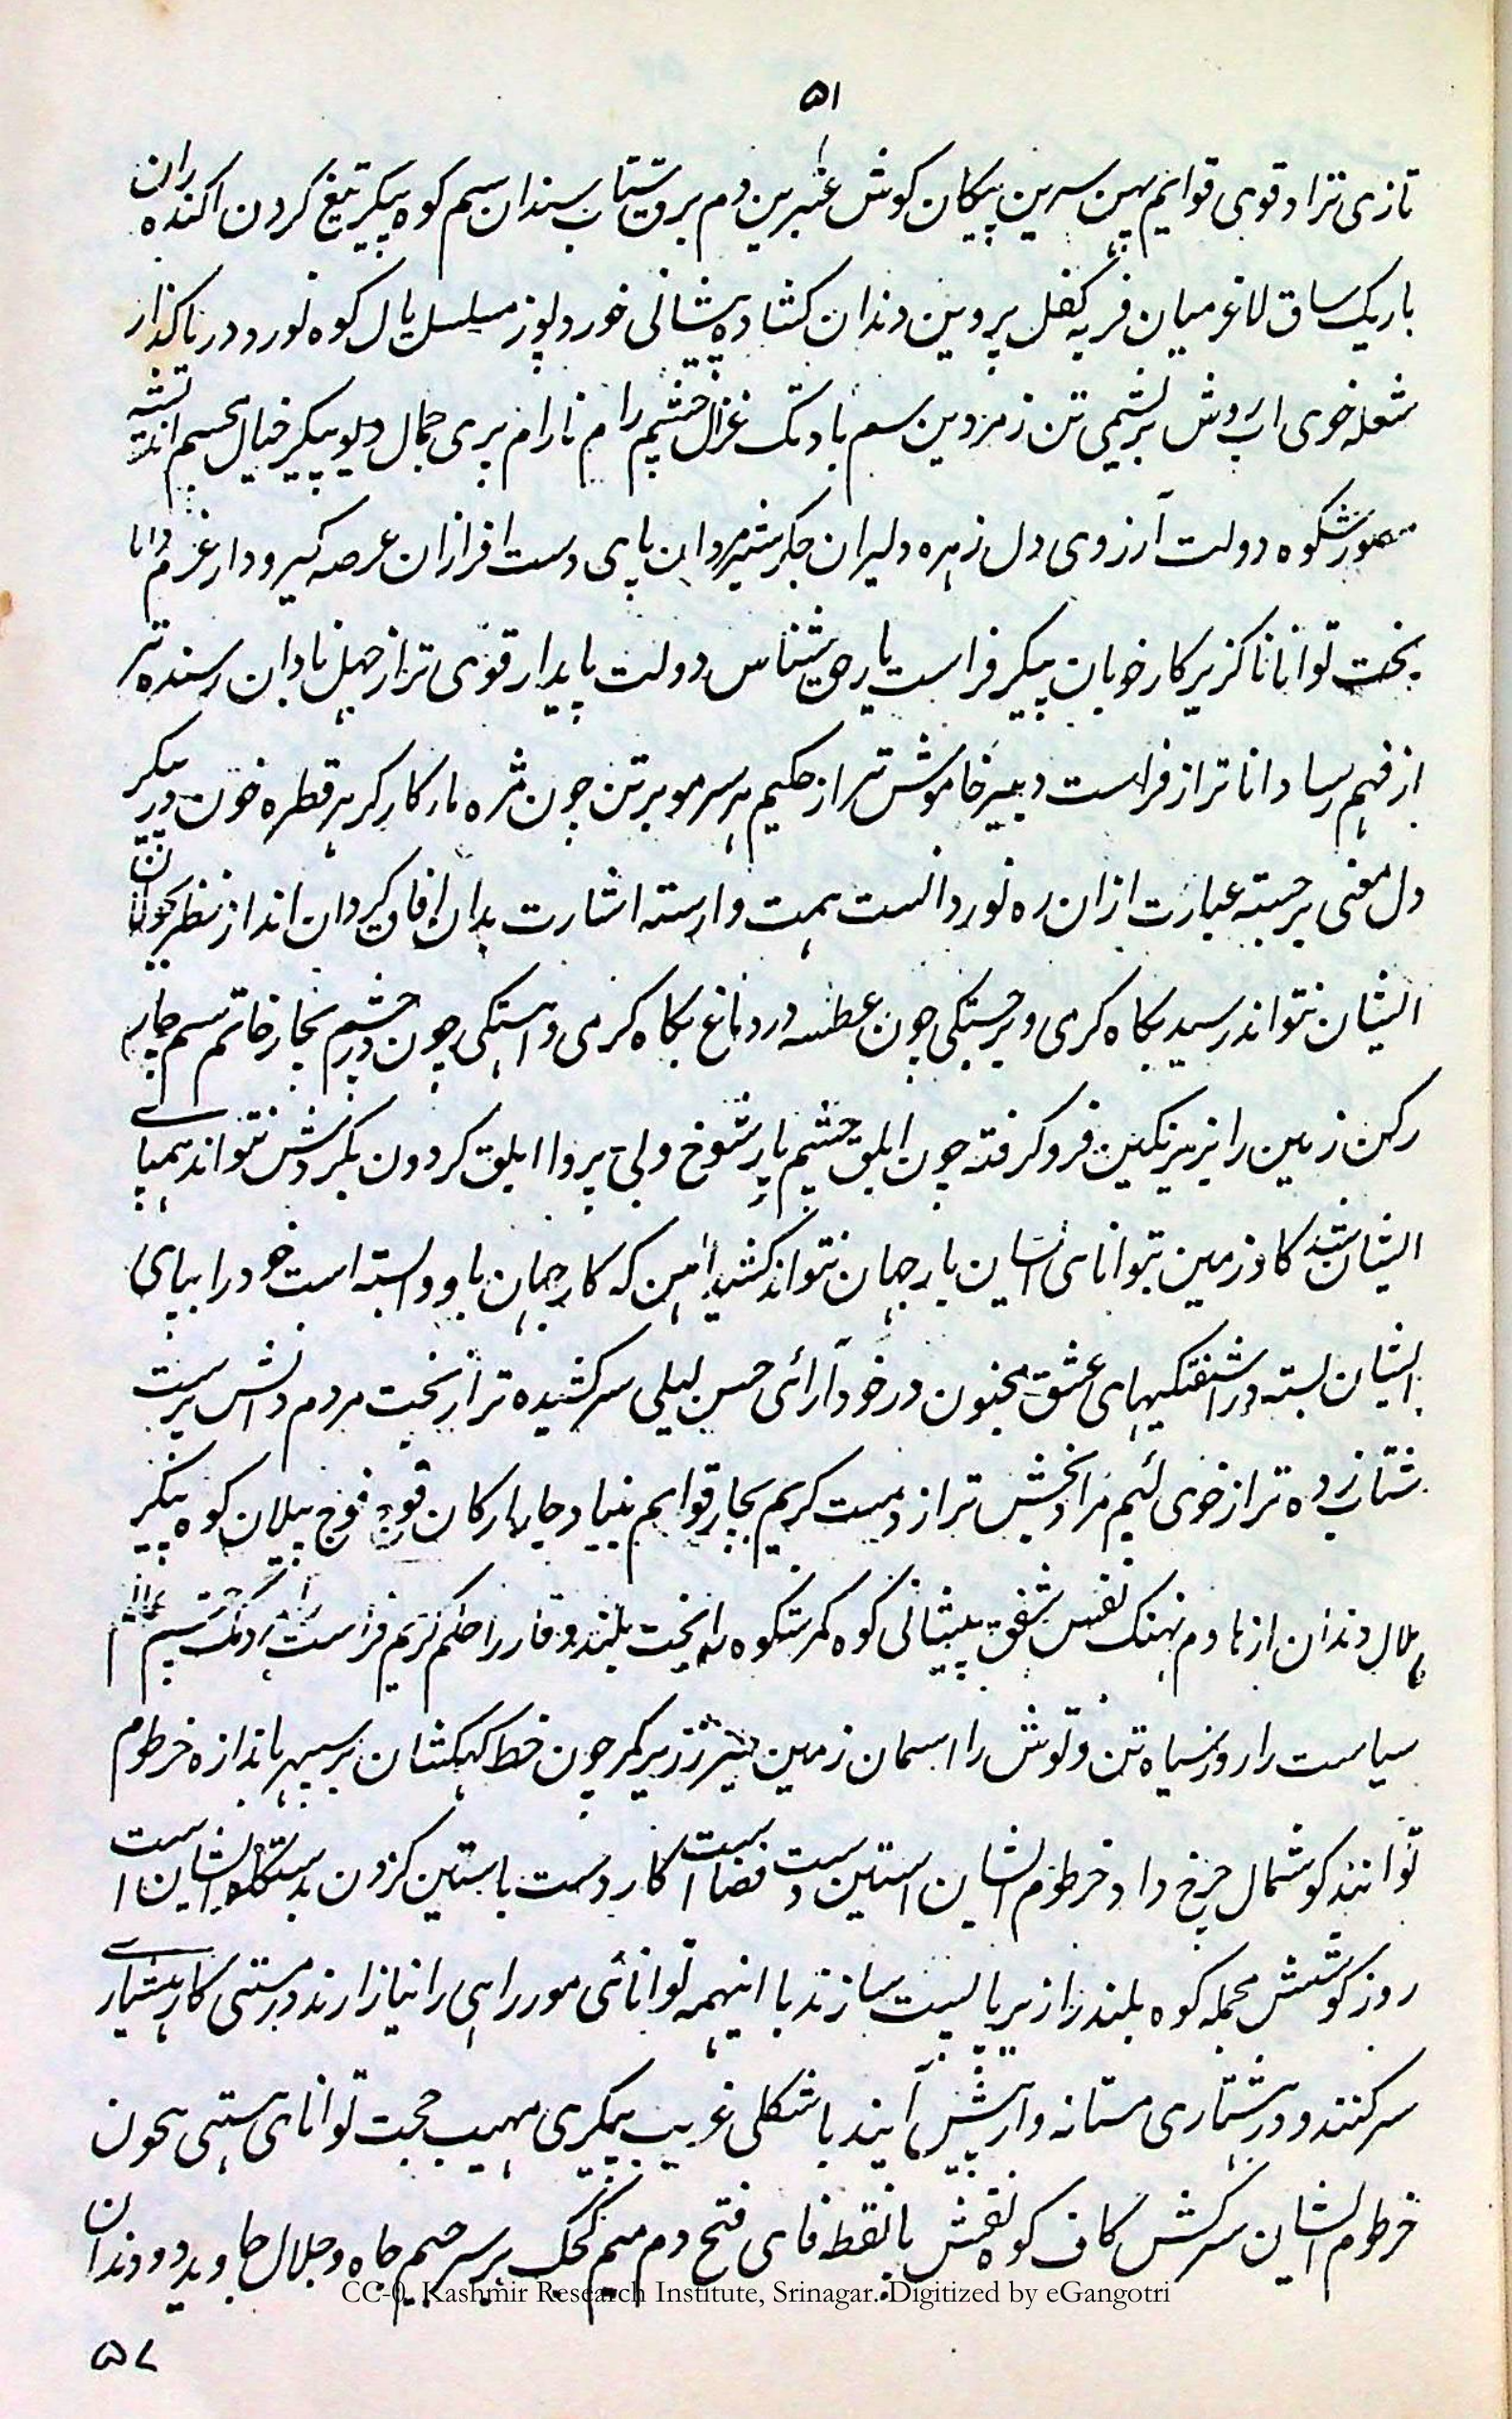 ۵۱
تازی نژاد قوی قوایم پهن سرین پیکان کوش عنبرین دم برق شتاب سندان سم کوه پیکر تیغ کردن اکنده ران
باریک ساق لاغر میان فربه کفل پروین دندان کشاده پیشانی خورد پوز مسلسل یال کوه نورد دریا کذار
شعله خوی اب روش بریشمی تن زمردین سم بادتک غزال چشم رام نارام پری جمال دیو پیکر خیال جسم اندیشه
شکوه دولت آرزوی دل زهره دلیران جکر شیرمردان پای دست افرازان عرصه کیرودار عزم دانا
بخت توانا ناکزیر کار خوبان پیکر فراست یار حق شناس دولت پایدار قوی تر از جهل نادان رسنده تر
از فهم رسا داناتر از فراست دبیر خاموش تر از حکیم هر سر مو بر تن چون مژه یار کارکر هر قطره خون در پیکر
دل معنی برجسته عبارت از ان ره نوردانست همت وارسته اشارت بدان افاق کیردان انداز نظر بجولان
ایشان نتواند رسید بکاه کرمی و برجستکی چون عطسه در دماغ بکاه نرمی و اهستکی چون در چشم بچار خاتم سم چار
رکن زمین را زیر نکین فرو کرفته چون ابلق چشم یار شوخ و بی پروا ابلق کردون بکردش نتواند همپای
ایشان شد کاو زمین بتوانای ایشان بار جهان نتواند کشید امن که کار جهان باو وابسته است خود را بپای
ایشان بسته در اشفتکیهای عشق مجنون در خود آرائی حسن لیلی سرکشیده تر از بخت مردم دانش پرست
شتاب زده تر از خوی لئیم مراد بخش تر از دست کریم بچار قوایم بنیاد چار ارکان فوج فوج پیلان کوه پیکر
هلال دندان اژدها دم نهنک نفس شفق پیشانی کوه کمر شکوه را بخت بلند وقار را حکم کریم فراست
سیاست را روز سیاه تن و توش را اسمان زمین زیر کمر چون خط کهکشان بر سپهر باندازه خرطوم
توانند کوشمال چرخ داد خرطوم ایشان استین دست قضا است کار دست باستین کردن بدستکاه ایشان است
روز کوشش بحمله کوه بلند را زیر پا پست سازند با اینهمه توانائی مور راهی را نیازارند در مستی کار هشیاری
سر کنند و در هشیاری مستانه وار پیش آیند با شکلی غریب پیکری مهیب حجت توانای هستی بچون
خرطوم ایشان سرکش کاف کوه نقش با نقطه فای فتح دم میم کجک بر سر جیم جاه و جلال جاوید دو دندان
CC-0. Kashmir Research Institute, Srinagar. Digitized by eGangotri
۵۷